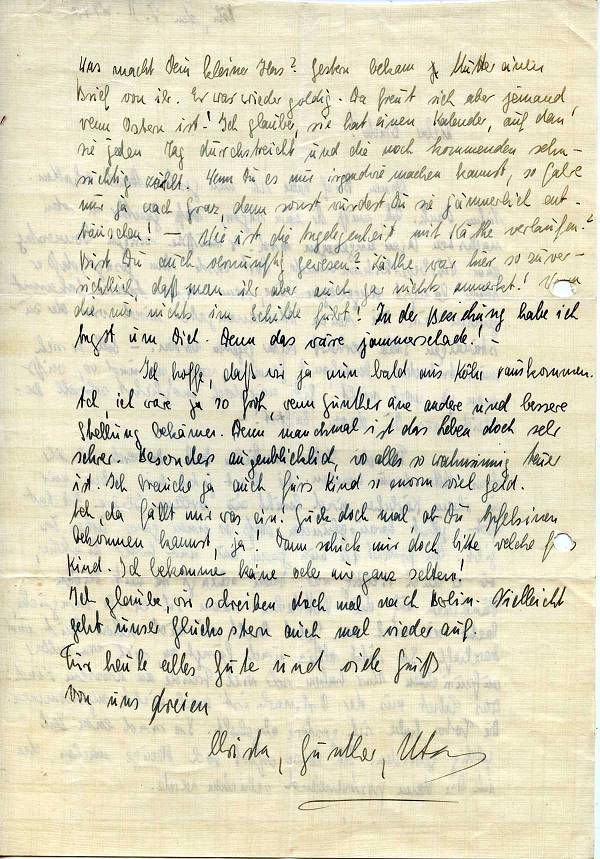 Was macht Dein kleiner Has? Gestern bekam Mutter einen
Brief von ihr. Er war wieder goldig. Da freut sich aber jemand,
wenn Ostern ist! Ich glaube, sie hat einen Kalender, auf dem
sie jeden Tag durchstreicht und die noch kommenden sehn-
süchtig zählt. Wenn Du es nur irgendwie machen kannst, so fahre
mir ja nach Graz, denn sonst würdest Du sie jämmerlich ent-
täuschen! — Wie ist die Angelegenheit mit Käthe verlaufen?
Bist Du auch vernünftig gewesen? Käthe war hier so zuver-
sichtlich, daß man ihr aber auch gar nichts anmerkte! Wenn
die nur nichts im Schilde führt! In der Beziehung habe ich
Angst um Dich. Denn das wäre jammerschade! –
Ich hoffe, daß wir ja nun bald aus Köln rauskommen.
Ach, ich wäre ja so froh, wenn Günther eine andere und bessere
Stellung bekäme. Denn manchmal ist das Leben doch sehr
schwer. Besonders augenblicklich, wo alles so wahnsinnig teuer
ist. Ich brauche ja auch fürs Kind so enorm viel Geld.
Ach, da fällt mir was ein. Guck doch mal ob Du Apfelsinen
bekommen kannst, ja! Dann schick mir doch bitte welche fürs
Kind. Ich bekomme keine oder nur ganz selten!
Ich glaube, wir schreiben doch mal nach Berlin. Vielleicht
geht unser Glücksstern auch mal wieder auf.
Für heute alles Gute und viele Grüße
von uns dreien
Günther, Uta